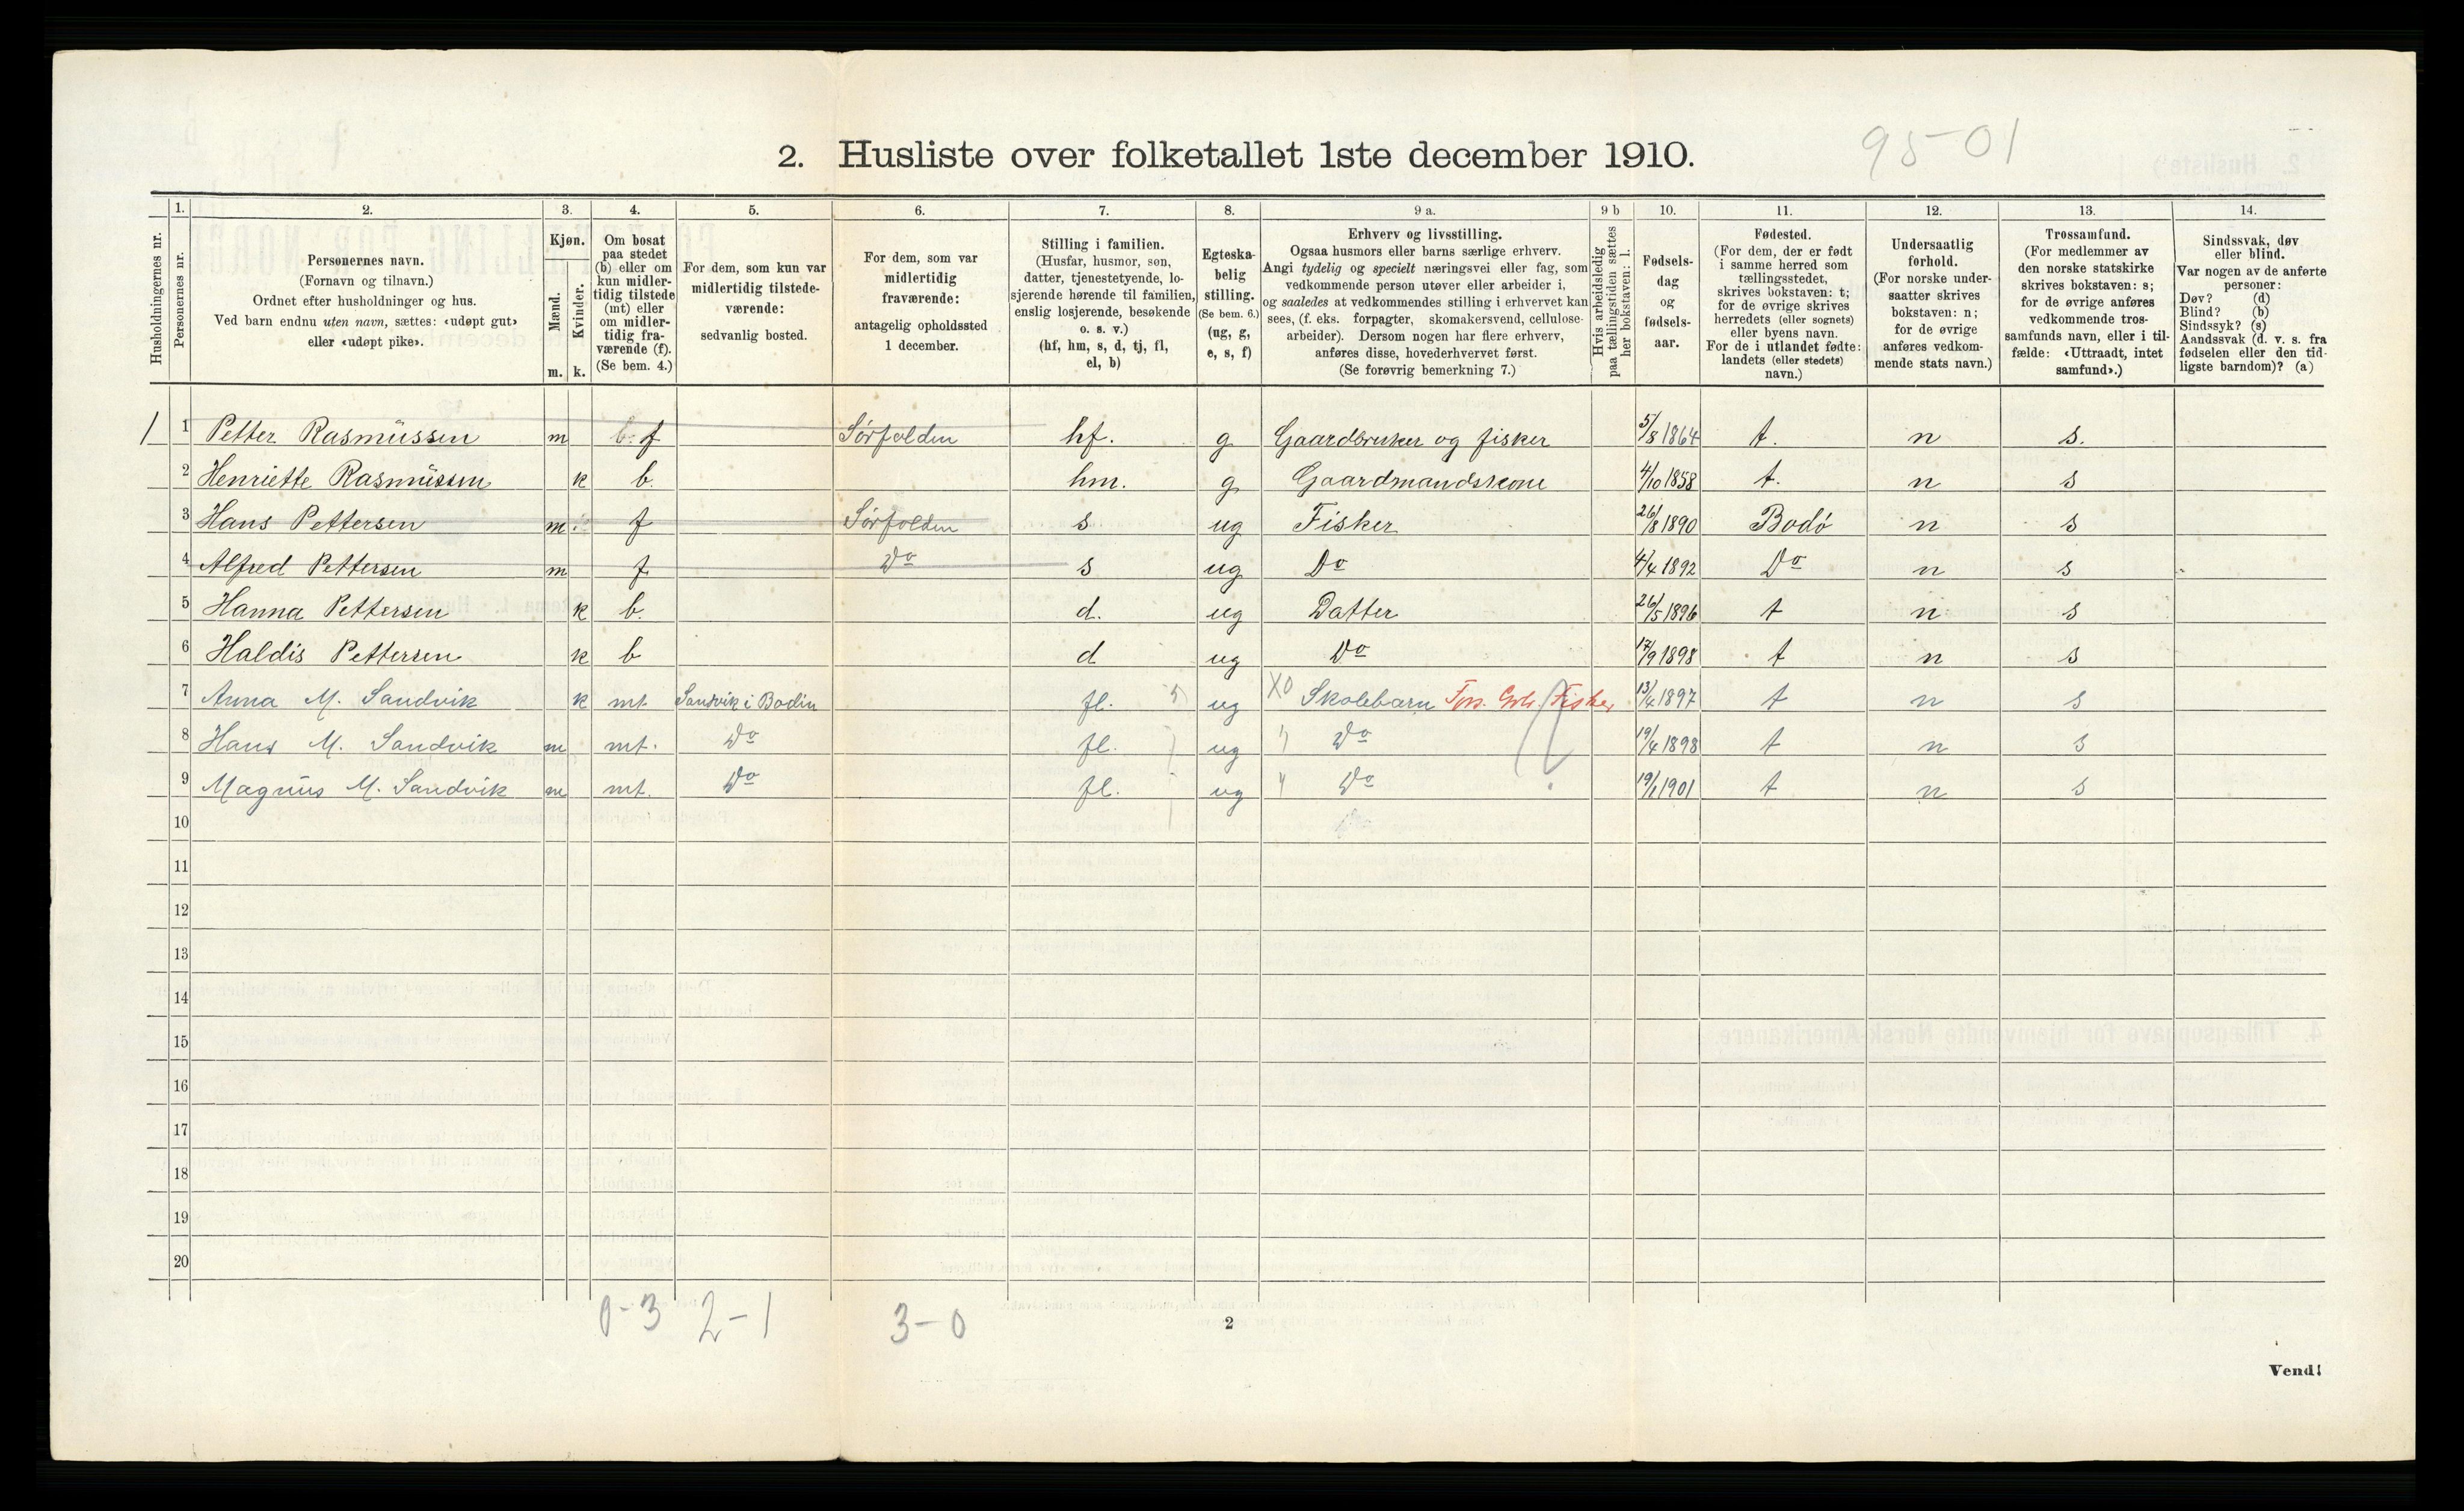 95-01
2. Husliste over folketallet 1ste december 1910.
Husholdningernes nr.
1. Personernes nr.
2. Personernes navn. (Fornavn og tilnavn.) Ordnet efter husholdninger og hus. Ved barn endnu uten navn, sættes: «udøpt gut» eller «udøpt pike».
3. Kjøn. Mænd. m. Kvinder. k.
4. Om bosat paa stedet (b) eller om kun midlertidig tilstede (mt) eller om midlertidig fraværende (f). (Se bem. 4.)
5. For dem, som kun var midlertidig tilstedeværende: sedvanlig bosted.
6. For dem, som var midlertidig fraværende: antagelig opholdssted 1 december.
7. Stilling i familien. (Husfar, husmor, søn, datter, tjenestetyende, losjerende hørende til familien, enslig losjerende, besøkende o. s. v.) (hf, hm, s, d, tj, fl, el, b)
8. Egteskabelig stilling. (Se bem. 6.) (ug, g, e, s, f)
9 a. Erhverv og livsstilling. Ogsaa husmors eller barns særlige erhverv. Angi tydelig og specielt næringsvei eller fag, som vedkommende person utøver eller arbeider i, og saaledes at vedkommendes stilling i erhvervet kan sees, (f. eks. forpagter, skomakersvend, cellulosearbeider). Dersom nogen har flere erhverv, anføres disse, hovederhvervet først. (Se forøvrig bemerkning 7.)
9 b Hvis arbeidsledig paa tællingstiden sættes her bokstaven: l.
10. Fødselsdag og fødselsaar.
11. Fødested. (For dem, der er født i samme herred som tællingsstedet, skrives bokstaven: t; for de øvrige skrives herredets (eller sognets) eller byens navn. For de i utlandet fødte: landets (eller stedets) navn.)
12. Undersaatlig forhold. (For norske undersaatter skrives bokstaven: n; for de øvrige anføres vedkommende stats navn.)
13. Trossamfund. (For medlemmer av den norske statskirke skrives bokstaven: s; for de øvrige anføres vedkommende trossamfunds navn, eller i tilfælde: «Uttraadt, intet samfund».)
14. Sindssvak, døv eller blind. Var nogen av de anførte personer: Døv? (d) Blind? (b) Sindssyk? (s) Aandssvak (d. v. s. fra fødselen eller den tidligste barndom)? (a)
1 1 Petter Rasmüssen m b. f Sørfolden hf. g Gaardbruker og fisker 5/8 1864 t. n s.
2 Henriette Rasmüssen k b. hm. g Gaardmandskone 4/10 1858 t. n s
3 Hans Pettersen m. f Sørfolden s ug Fisker 26/8 1890 Bodø n s
4 Alfred Pettersen m f Do s ug Do 4/4 1892 Do n s
5 Hanna Pettersen k b. d. ug Datter 26/5 1896 t n s
6 Haldis Pettersen k b d ug Do 17/9 1898 t n s
7 Anna M. Sandvik k mt Sandvik i Bodin fl. ug X0 Skolebarn Fors. Grb. Fisker 13/4 1897 t n s
8 Hans M. Sandvik m mt. Do fl. ug Do 19/4 1898 t n s
9 Magnüs M. Sandvik m mt. Do fl. ug Do 19/1 1901 t n s
10
11
12
13
14
15
16
17
18
19
20
0-3 2-1 3-0
2
Vend!